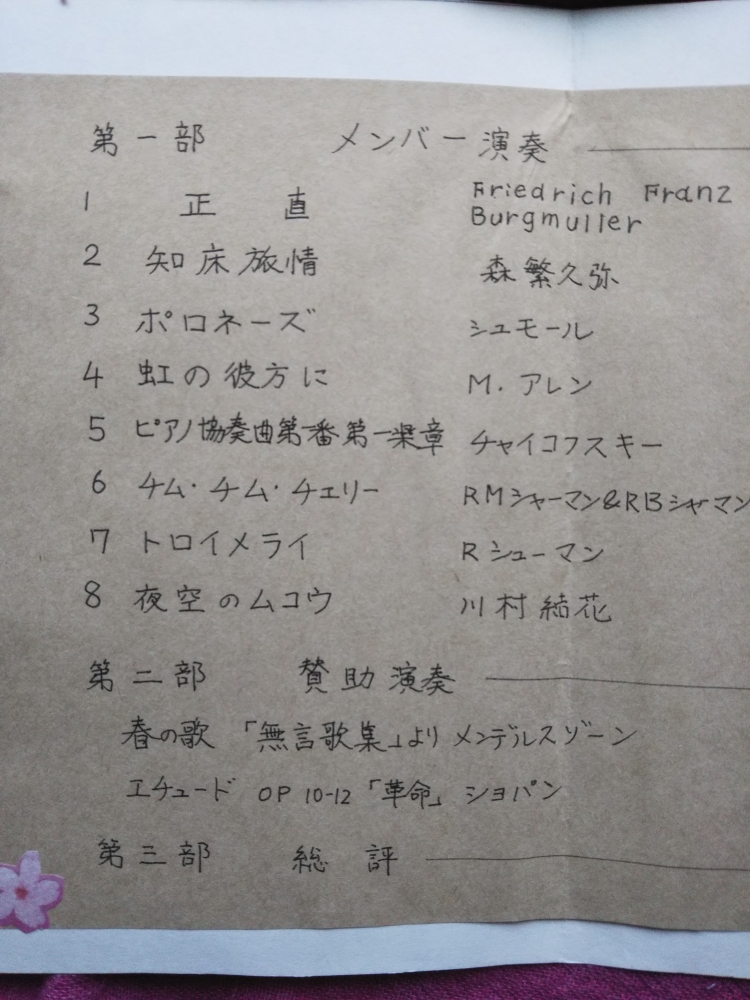 第一部 メンバー演奏
1 正直 Friedrich Franz
Burgmuller
2 知床旅情 森繁久弥
3 ポロネーズ シュモール
4 虹の彼方に M. アレン
5 ピアノ協奏曲第一番第一楽章 チャイコフスキー
6 チム・チム・チェリー RMシャーマン&RBシャーマン
7 トロイメライ Rシューマン
8 夜空のムコウ 川村結花
第二部 賛助演奏
春の歌「無言歌集」より メンデルスゾーン
エチュード OP 10-12「革命」 ショパン
第三部 総評